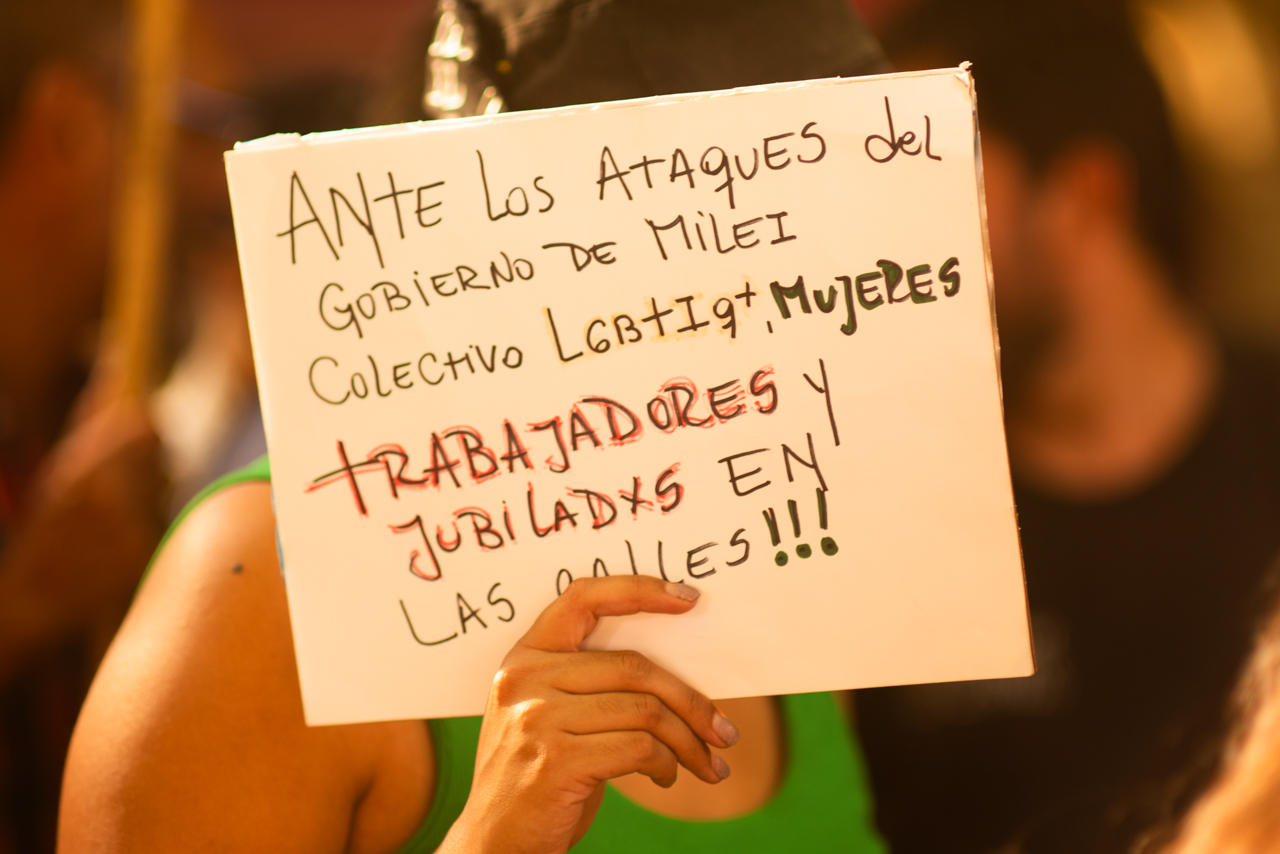 ANTE LOS ATAQUES del
GOBIERNO DE MILEI
COLECTIVO LGBTIq+, MUJERES
TRABAJADORES Y
JUBILADXS EN
LAS CALLES!!!